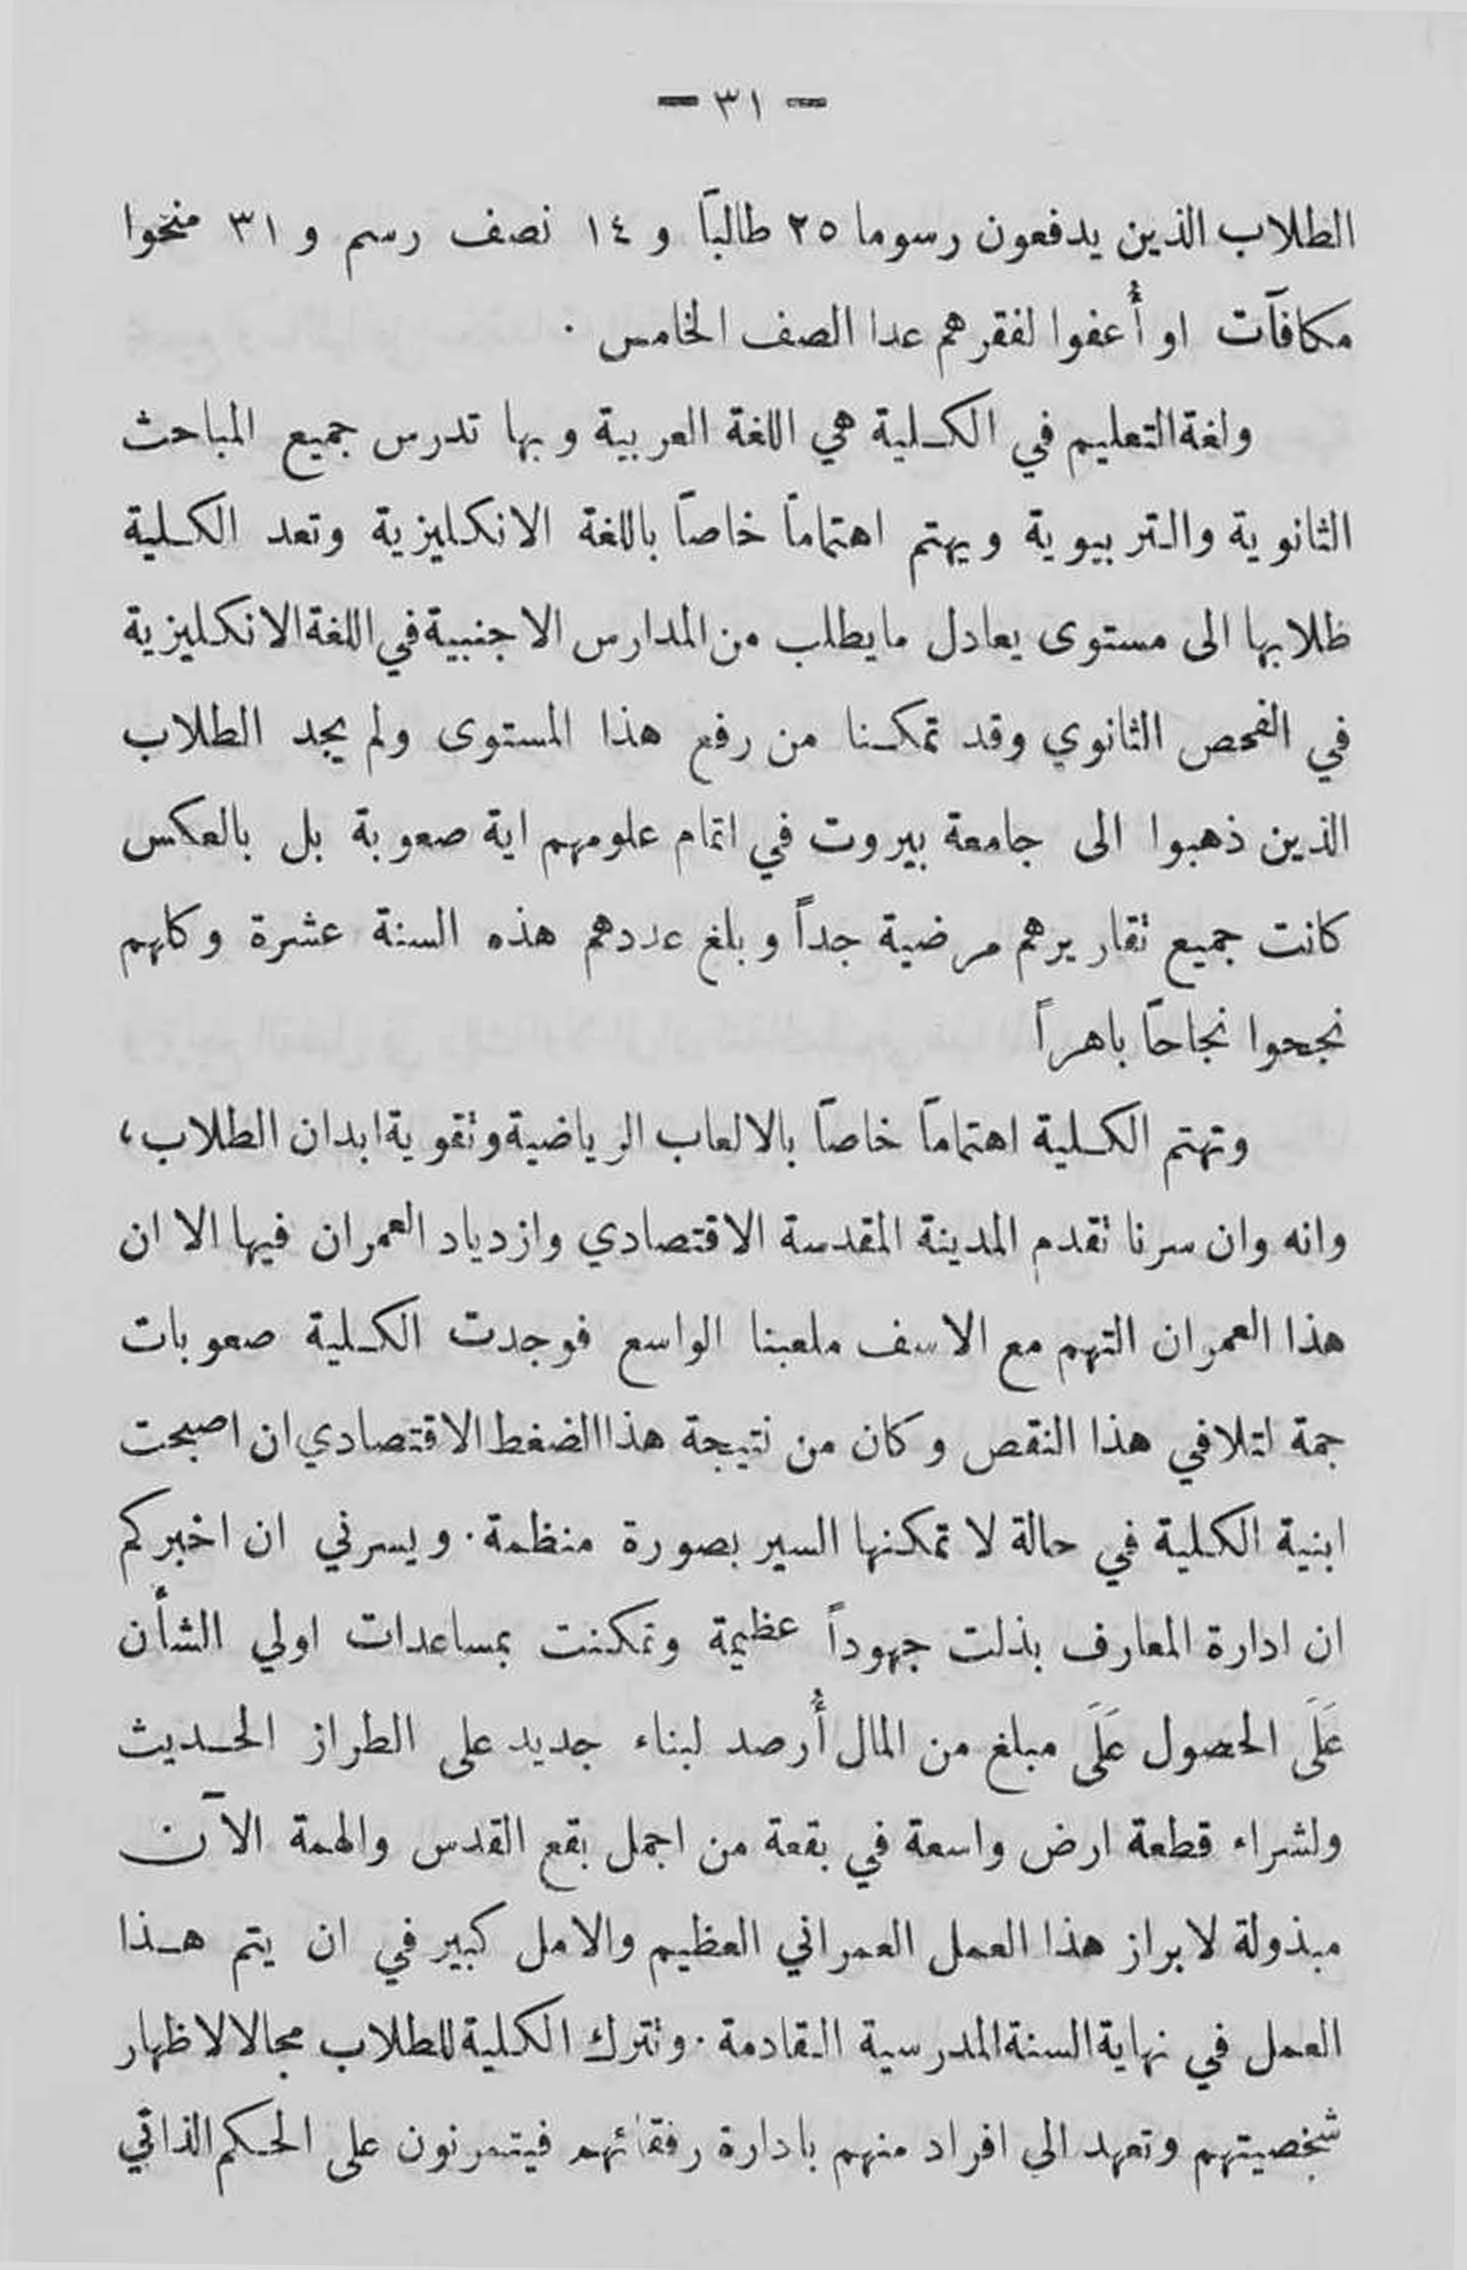 — ٣١ —
الطلاب الذين يدفعون رسوما ٢٥ طالبًا و ١٤ نصف رسم و ٣١ منحوا
مكافآت او أُعفوا لفقرهم عدا الصف الخامس .
ولغة التعليم في الكلية هي اللغة العربية وبها تدرس جميع المباحث
الثانوية والتربيوية ويهتم اهتمامًا خاصًا باللغة الانكليزية وتعد الكلية
طلابها الى مستوى يعادل ما يطلب من المدارس الاجنبية في اللغة الانكليزية
في الفحص الثانوي وقد تمكنا من رفع هذا المستوى ولم يجد الطلاب
الذين ذهبوا الى جامعة بيروت في اتمام علومهم اية صعوبة بل بالعكس
كانت جميع تقاريرهم مرضية جداً وبلغ عددهم هذه السنة عشرة وكلهم
نجحوا نجاحًا باهراً
وتهتم الكلية اهتمامًا خاصًا بالالعاب الرياضية وتقوية ابدان الطلاب ،
وانه وان سرنا تقدم المدينة المقدسة الاقتصادي وازدياد العمران فيها الا ان
هذا العمران التهم مع الاسف ملعبنا الواسع فوجدت الكلية صعوبات
جمة لتلافي هذا النقص وكان من نتيجة هذا الضغط الاقتصادي ان اصبحت
ابنية الكلية في حالة لا تمكنها السير بصورة منظمة . ويسرني ان اخبركم
ان ادارة المعارف بذلت جهوداً عظيمة وتمكنت بمساعدات اولي الشأن
عَلَى الحصول عَلَى مبلغ من المال أُرصد لبناء جديد على الطراز الحديث
ولشراء قطعة ارض واسعة في بقعة من اجمل بقع القدس والهمة الآن
مبذولة لابراز هذا العمل العمراني العظيم والامل كبير في ان يتم هذا
العمل في نهاية السنة المدرسية القادمة . وتترك الكلية للطلاب مجالا لاظهار
شخصيتهم وتعهد الى افراد منهم بادارة رفقائهم فيتمرنون على الحكم الذاتي